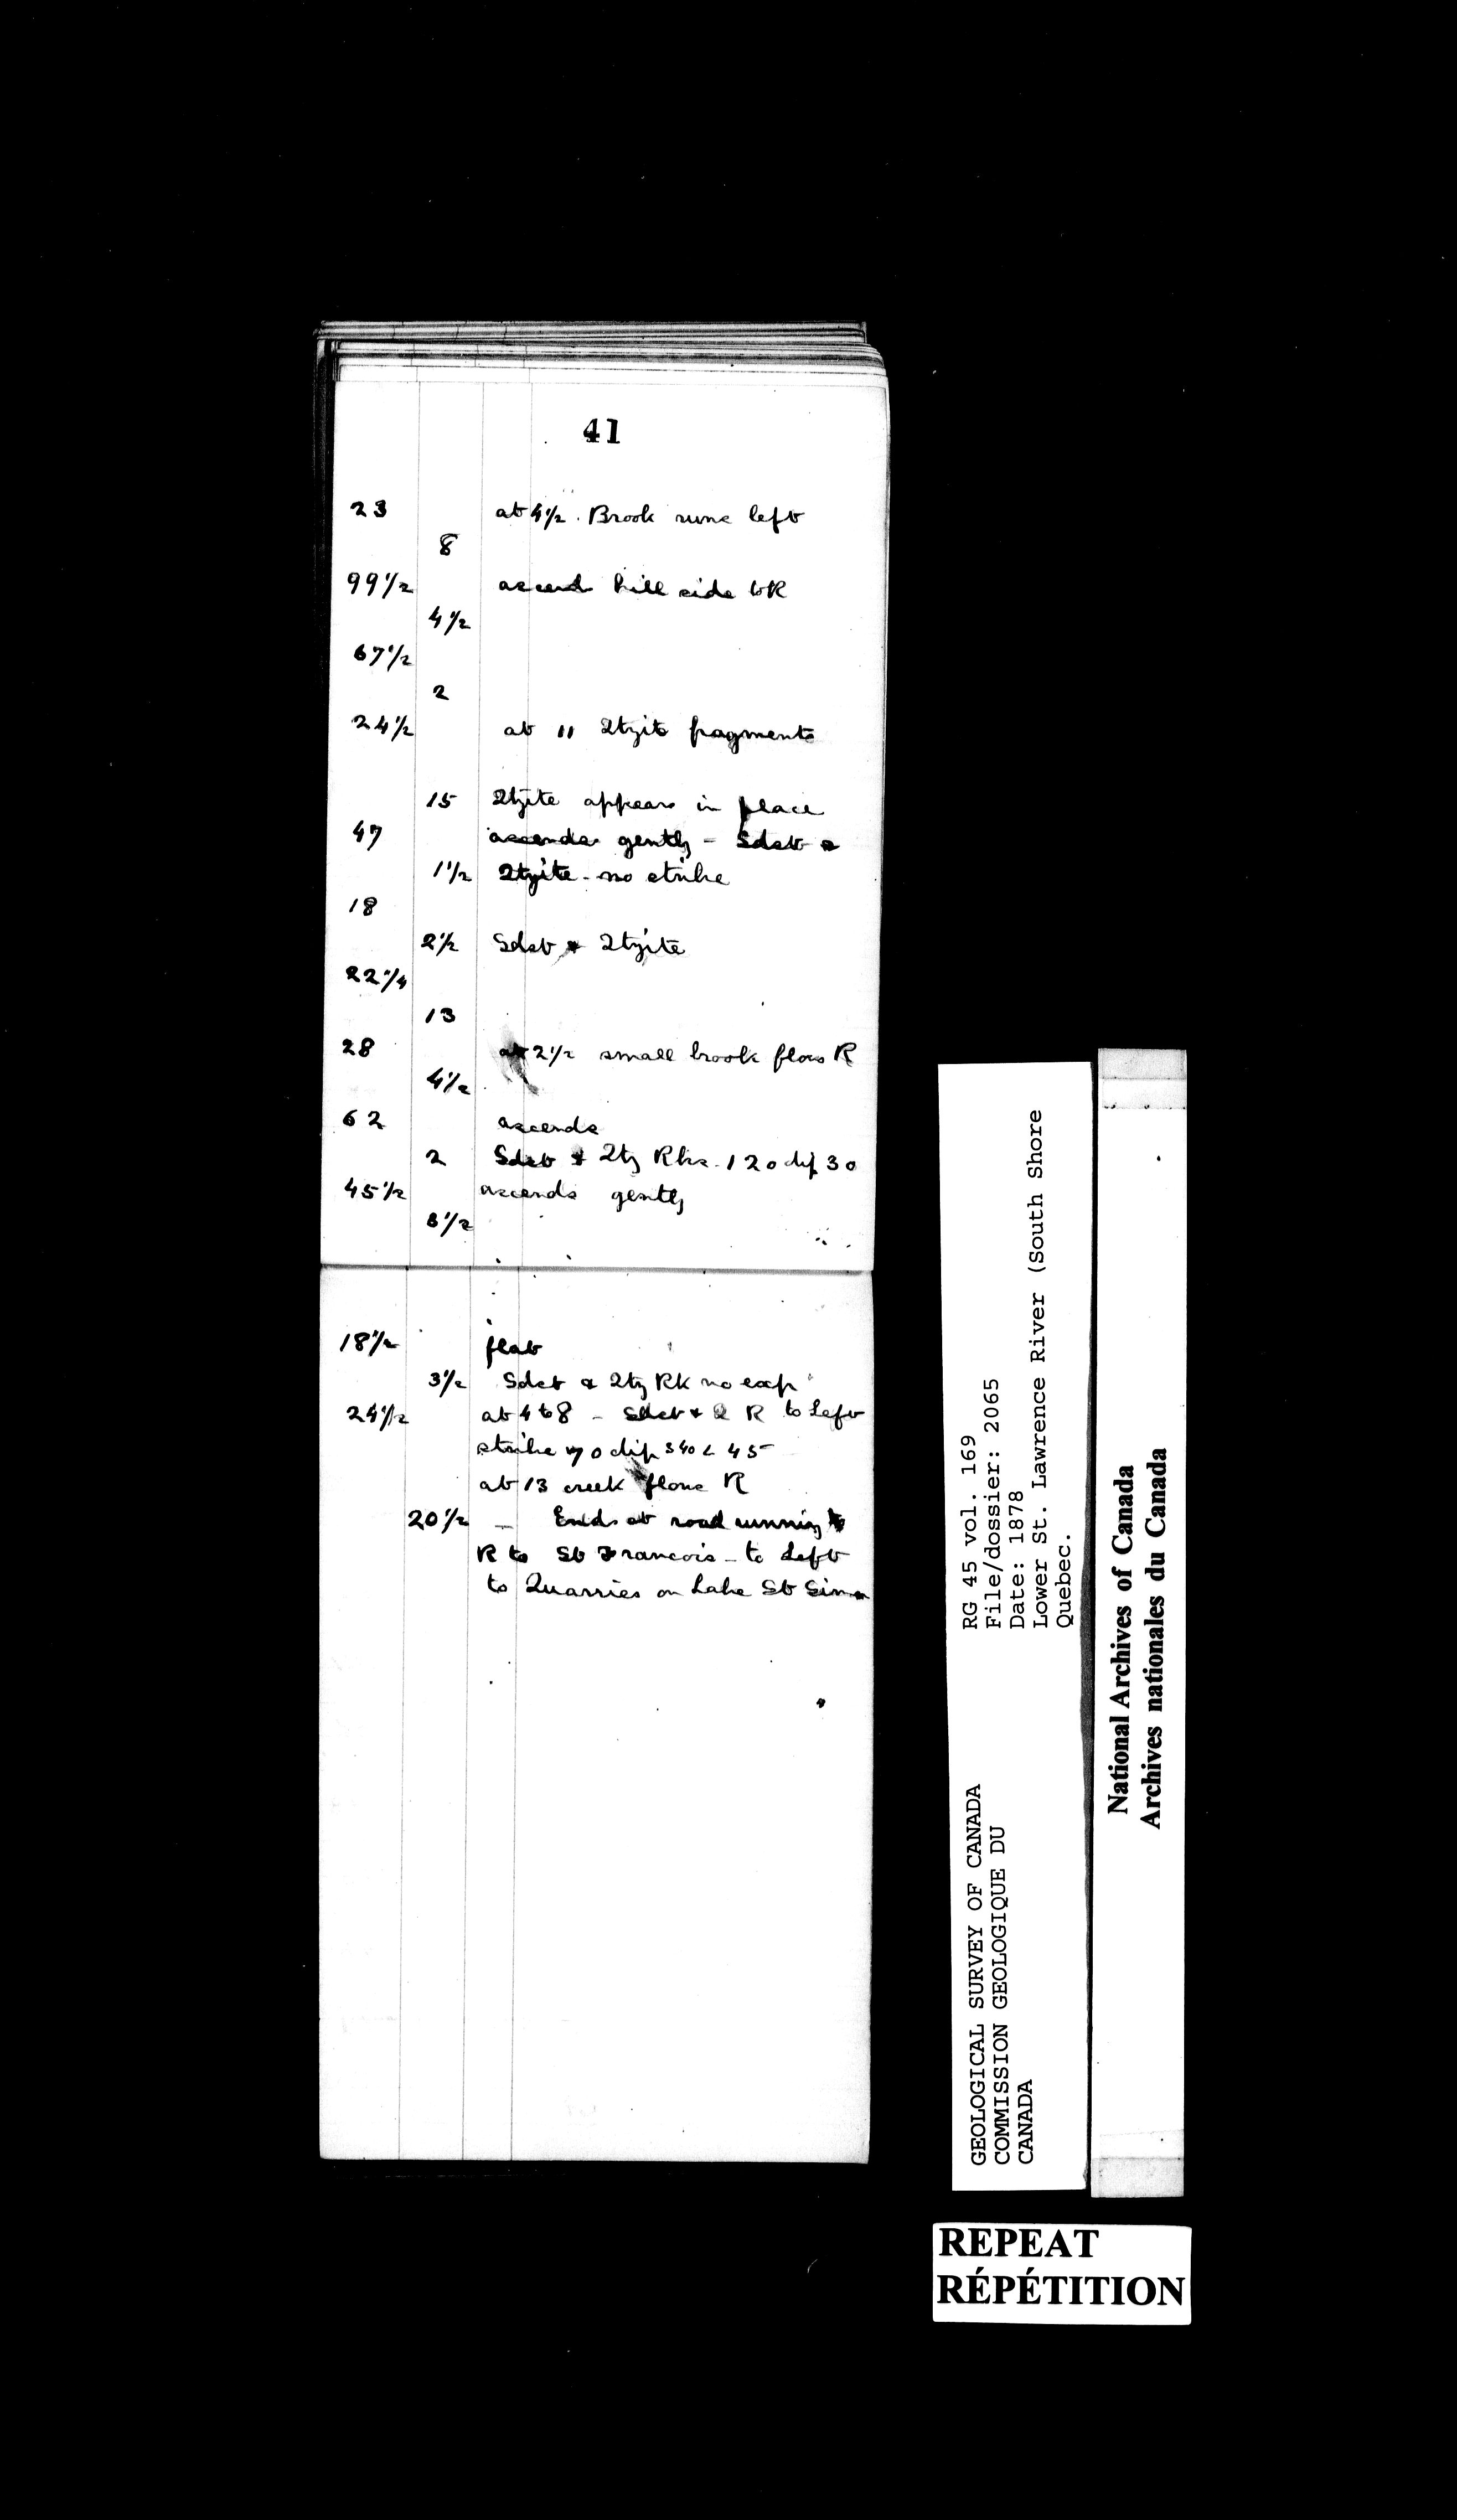 41
23 at 4½ . Brook runs left
8
99½ ascends hill side to R
4½
67½
2
24½ at 11 Qtzite fragments
15 Qtzite appears in place
47 ascends gently - Sdst &
1½ Qtzite - no strike
18
2½ Sdst & Qtzite
22¼
13
28 at 2½ small brook flows R
4½
62 ascends
2 Sdst & Qtz Rks. 120 dip 30
45½ ascends gently
6½
18½ flat
3½ Sdst & Qtz Rk no exp
24½ at 4 to 8 - Sdst & Q R to left
strike 70 dip S 40 < 45
at 13 creek flows R
20½ - Ends at road running to
R to St Francois - to left
to Quarries on Lake St Simon
RG 45 vol. 169
File/dossier: 2065
Date: 1878
Lower St. Lawrence River (South Shore
Quebec.
GEOLOGICAL SURVEY OF CANADA
COMMISSION GEOLOGIQUE DU
CANADA
National Archives of Canada
Archives nationales du Canada
REPEAT
RÉPÉTITION